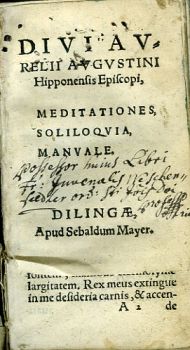 DIVI AV-
RELII AVGVSTINI
Hipponensis Episcopi,
MEDITATIONES,
SOLILOQVIA,
MANVALE.
Possessor huius Libri
Fr: Iuvenalis
DILINGÆ,
Apud Sebaldum Mayer.
largitatem. Rex meus extingue
in me desideria carnis, & accen-
A 2 de